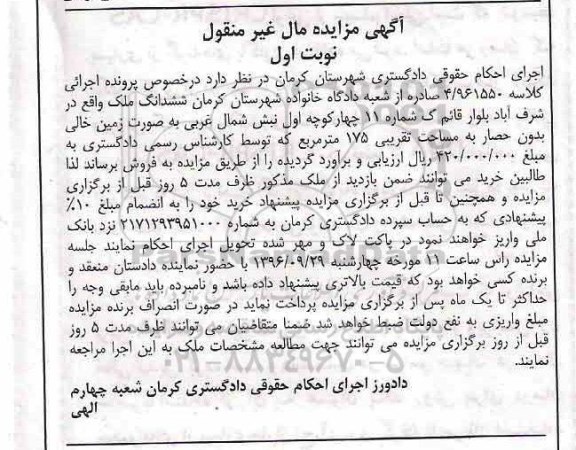 آگهی مزایده مال غیر منقول
نوبت اول
اجرای احکام حقوقی دادگستری شهرستان کرمان در نظر دارد درخصوص پرونده اجرائی
کلاسه ۴/۹۶۱۵۵۰ صادره از شعبه دادگاه خانواده شهرستان کرمان ششدانگ ملک واقع در
شرف آباد بلوار قائم ک شماره ۱۱ چهارکوچه اول نبش شمال غربی به صورت زمین خالی
بدون حصار به مساحت تقریبی ۱۷۵ مترمربع که توسط کارشناس رسمی دادگستری به
مبلغ ۴۲۰/۰۰۰/۰۰۰ ریال ارزیابی و برآورد گردیده را از طریق مزایده به فروش برساند لذا
طالبین خرید می توانند ضمن بازدید از ملک مذکور ظرف مدت ۵ روز قبل از برگزاری
مزایده و همچنین تا قبل از برگزاری مزایده پیشنهاد خرید خود را به انضمام مبلغ ۱۰٪
پیشنهادی که به حساب سپرده دادگستری کرمان به شماره ۲۱۷۱۲۹۳۹۵۱۰۰۰ نزد بانک
ملی واریز خواهند نمود در پاکت لاک و مهر شده تحویل اجرای احکام نمایند جلسه
مزایده راس ساعت ۱۱ مورخه چهارشنبه ۱۳۹۶/۰۹/۲۹ با حضور نماینده دادستان منعقد و
برنده کسی خواهد بود که قیمت بالاتری پیشنهاد داده باشد و نامبرده باید مابقی وجه را
حداکثر تا یک ماه پس از برگزاری مزایده پرداخت نماید در صورت انصراف برنده مزایده
مبلغ واریزی به نفع دولت ضبط خواهد شد ضمنا متقاضیان می توانند ظرف مدت ۵ روز
قبل از روز برگزاری مزایده می توانند جهت مطالعه مشخصات ملک به این اجرا مراجعه
نمایند.
دادورز اجرای احکام حقوقی دادگستری کرمان شعبه چهارم
الهی